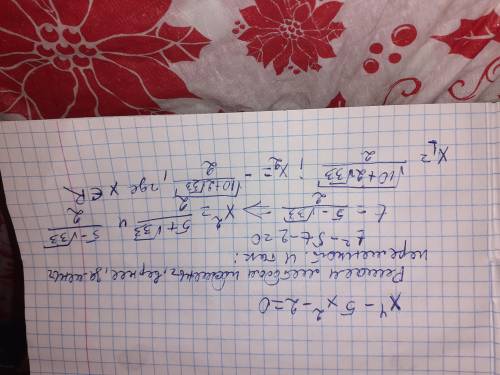 x⁴ - 5x² - 2 = 0
Решаем методом , вернее, замены
переменной. И так:
t² - 5t - 2 = 0
t = (5 - √33)/2 => x² = (5 + √33)/2 и (5 - √33)/2
x₁ = √(10 + 2√33)/2 ; x₂ = - √(10 + 2√33)/2 , где x ∈ R